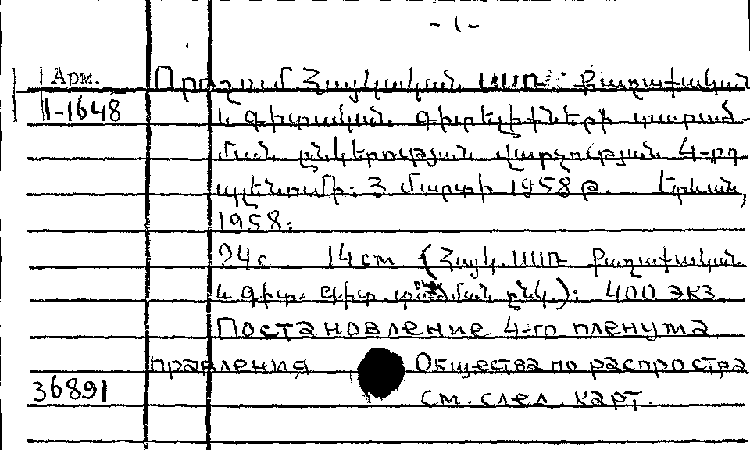 - 1 -
Арм. Որոշում Հայկական ՍՍՌ քաղաքական
II-1648 և գիտական գիտելիքների տարած
ման ընկերության վարչության 4-րդ
պլենումի: 3 մարտի 1958 թ. Երևան,
1958:
24с 14 cm (Հայկ. ՍՍՌ քաղաքական
և գիտ. գիտ. տարածման ընկ.): 400 экз
Постановление 4-го пленума
правления Общества по распростра
36891 см. след. карт.